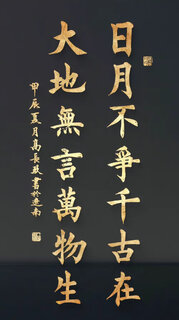 日月不爭千古在
大地無言萬物生
甲辰夏月高長毅書於連南